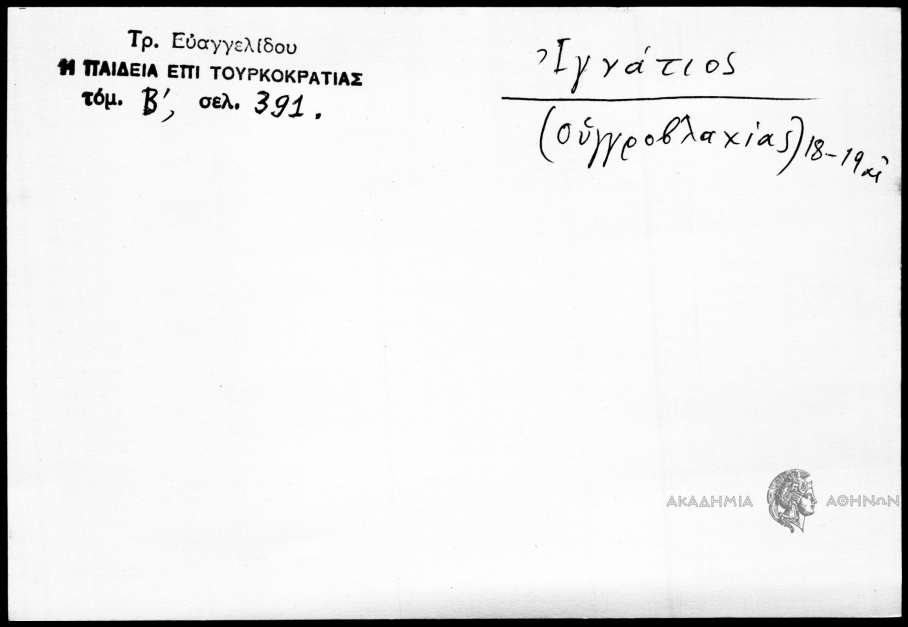 Τρ. Εὐαγγελίδου
Η ΠΑΙΔΕΙΑ ΕΠΙ ΤΟΥΡΚΟΚΡΑΤΙΑΣ
τόμ. Β', σελ. 391.
Ἰγνάτιος
(Οὑγγροβλαχίας) 18-19 αἰ
ΑΚΑΔΗΜΙΑ ΑΘΗΝΩΝ